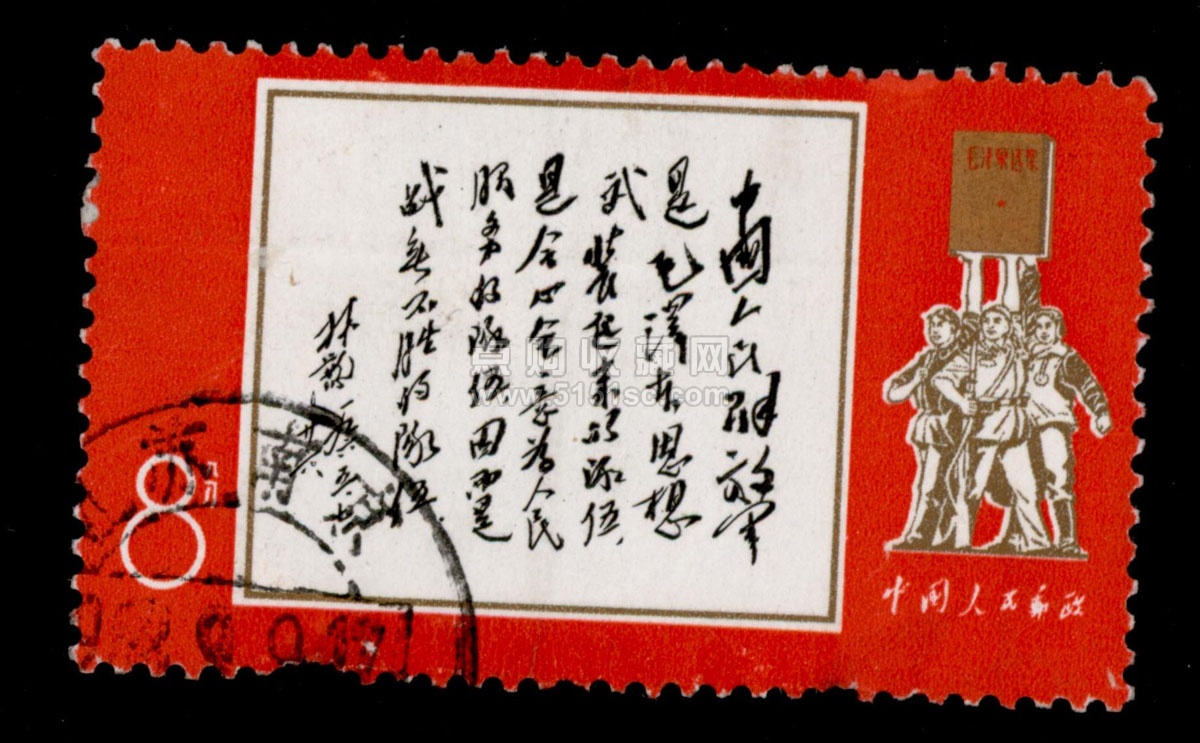 中國人民解放军
是毛澤东思想
武装起来的队伍.
是全心全意为人民
服务的队伍因而是
战无不胜的隊伍.
林彪 一九六五.七.
廿六
毛泽东选集
中国人民邮政
8
八分
点购收藏网
南